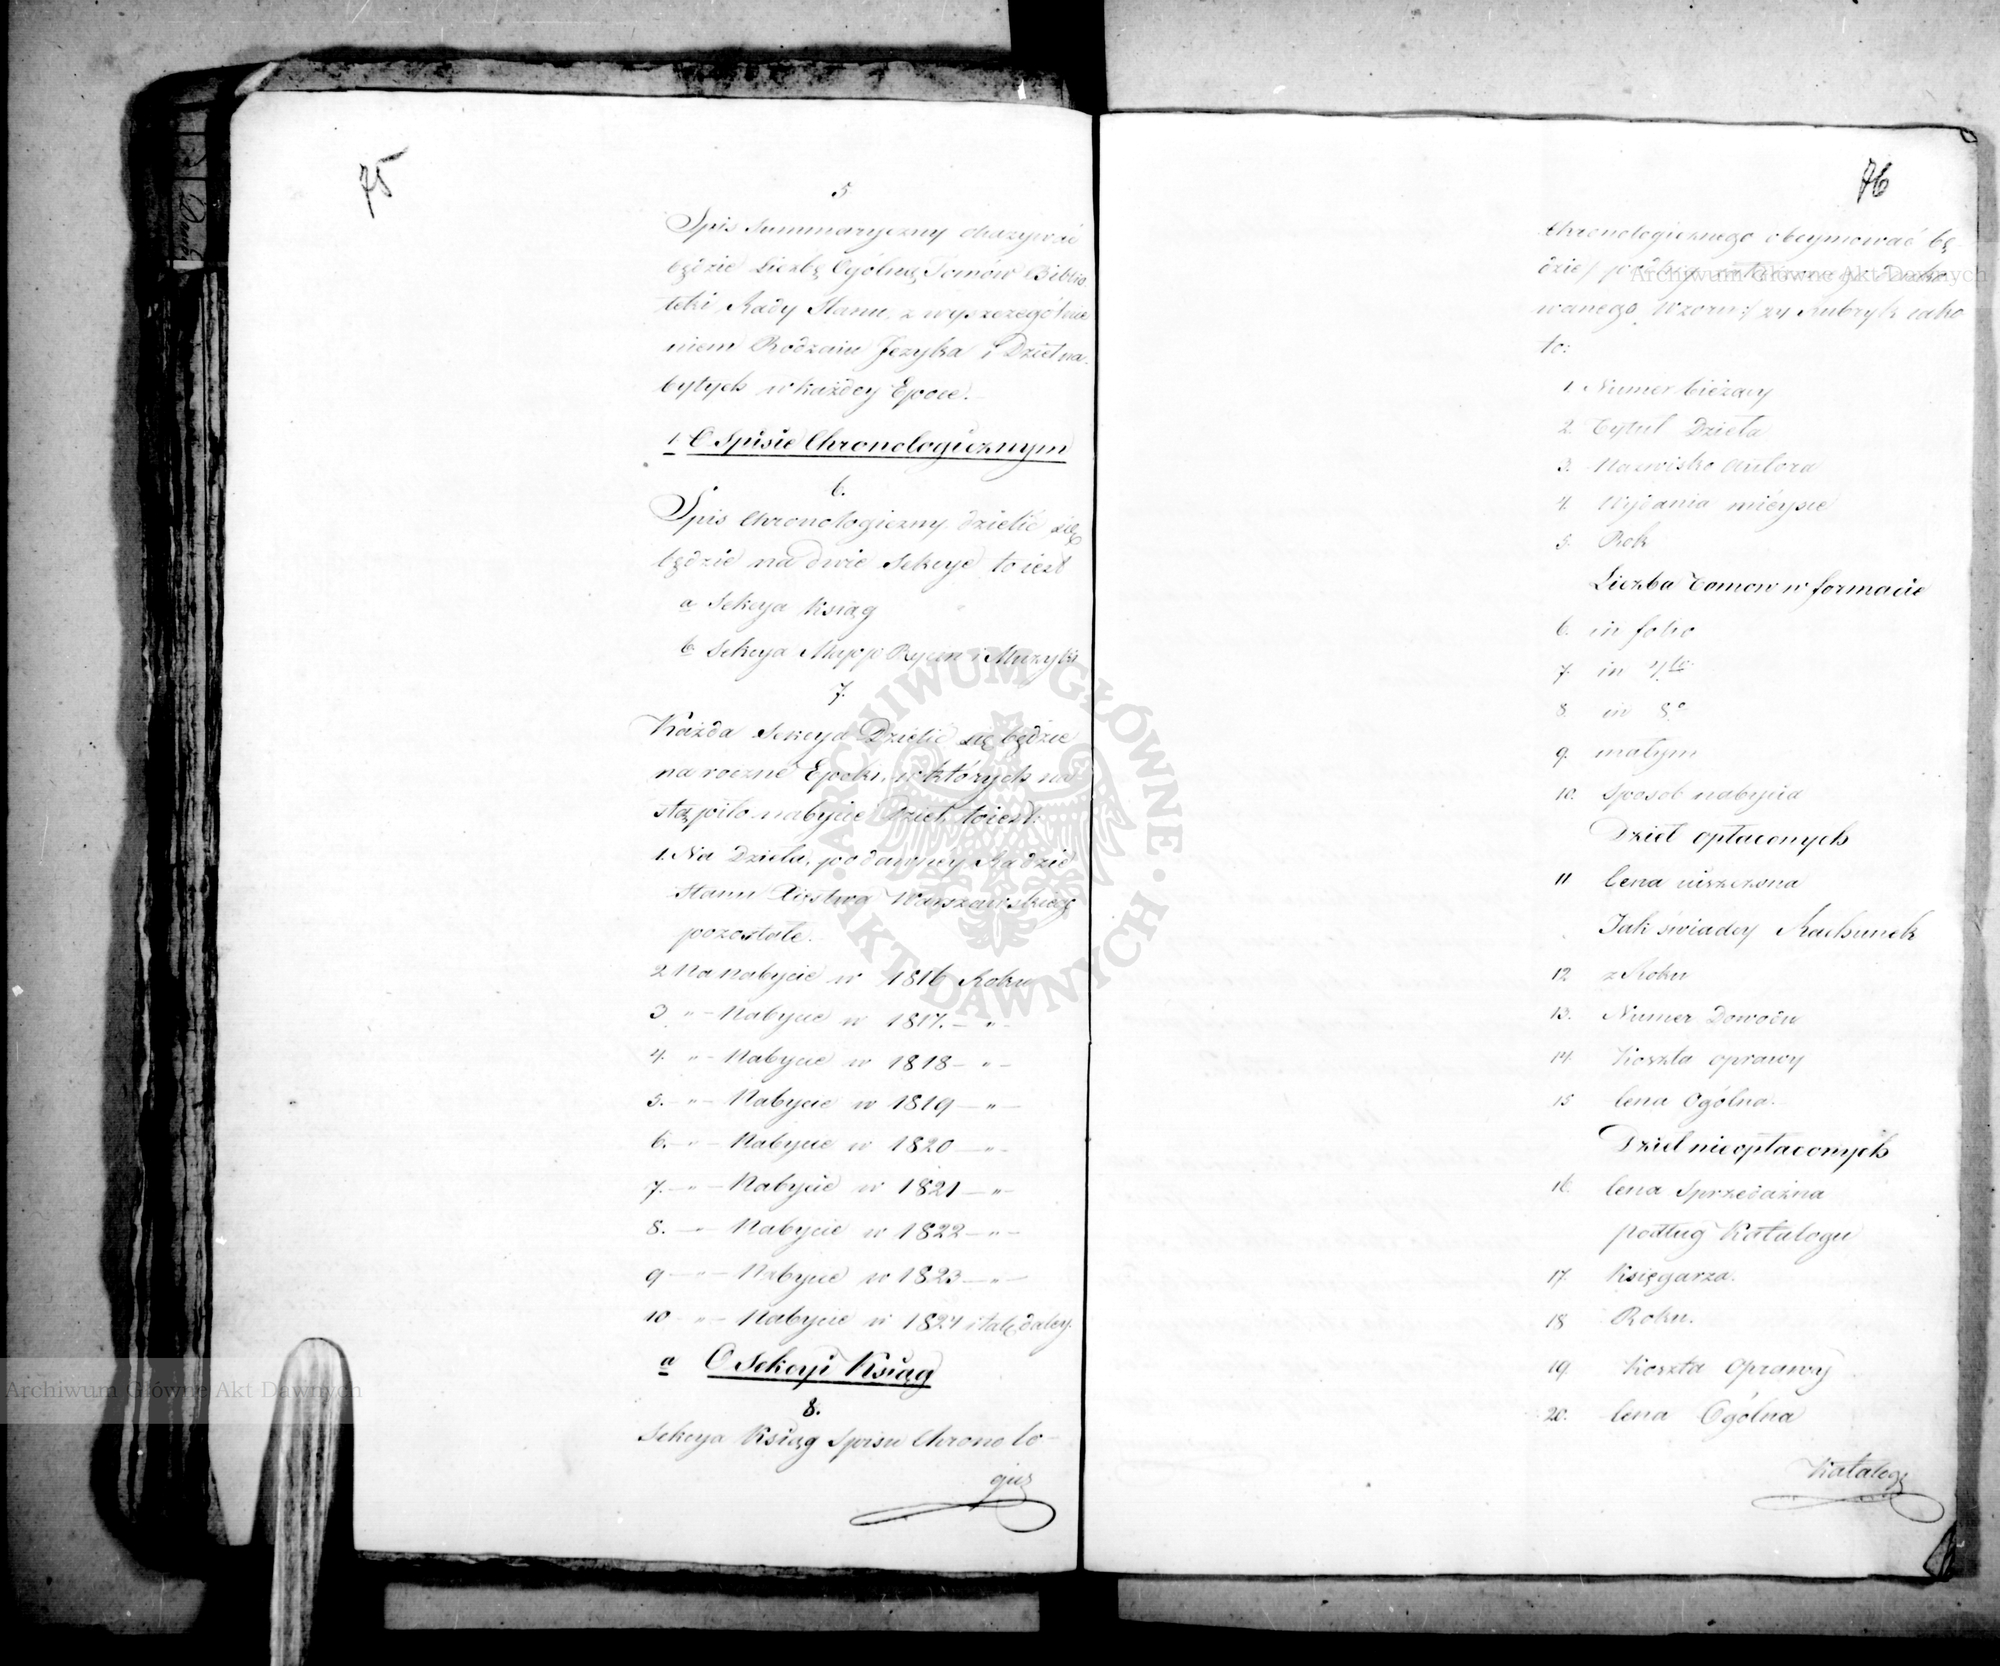 75
5
Spis Summaryczny okazywać
będzie Liczbę Ogólną Tomów Biblio-
teki Rady Stanu, z wyszczególnie
niem Rodzaiu Języka i Dzieł na-
bytych w każdey Epoce.
1. O Spisie Chronologicznym
6.
Spis Chronologiczny dzielić się
będzie na dwie Sekcye to iest
a Sekcya Ksiąg
b Sekcya Mapp Rycin i Muzyki
7.
Każda Sekcya Dzielić się będzie
na roczne Epoki, w których na
stąpiło nabycie Dzieł, toiest:
1. Na Dzieła, po dawney Radzie
Stanu Xięstwa Warszawskieg
pozostałe.
2 Na nabycie w 1816 Roku
3 " – Nabycie w 1817. – " –
4. " – Nabycie w 1818 – " –
5. – " – Nabycie w 1819 – " –
6. – " – Nabycie w 1820 – " –
7. – " – Nabycie w 1821 – " –
8. – " – Nabycie w 1822 – " –
9 – " – Nabycie w 1823 – " –
10 – " – Nabycie w 1824 i tak daley.
a O Sekcyi Ksiąg
8.
Sekcya Ksiąg Spisu Chronolo-
gicz
76
Chronologicznego obeymować bę-
dzie
wanego Wzoru:/ 24 Rubryk iako
to:
1. Numer bieżący
2. Tytuł Dzieła
3. Nazwisko Autora
4. Wydania mieysce
5. Rok
Liczba Tomów w formacie
6. in folio
7. in 4to
8. in 8o
9. małym
10. Sposob nabycia
Dzieł opłaconych
11 Cena uiszczona
Jak świadcy Rachunek
12 z Roku
13. Numer Dowodu
14. Koszta oprawy
15 Cena Ogólna.
Dzieł nieopłaconych
16. Cena Sprzedażna
podług Katalogu
17. Księgarza.
18 Roku.
19. Koszta Oprawy
20. Cena Ogólna
Katalog
ARCHIWUM GŁÓWNE AKT DAWNYCH
Archiwum Główne Akt Dawnych
Archiwum Główne Akt Dawnych